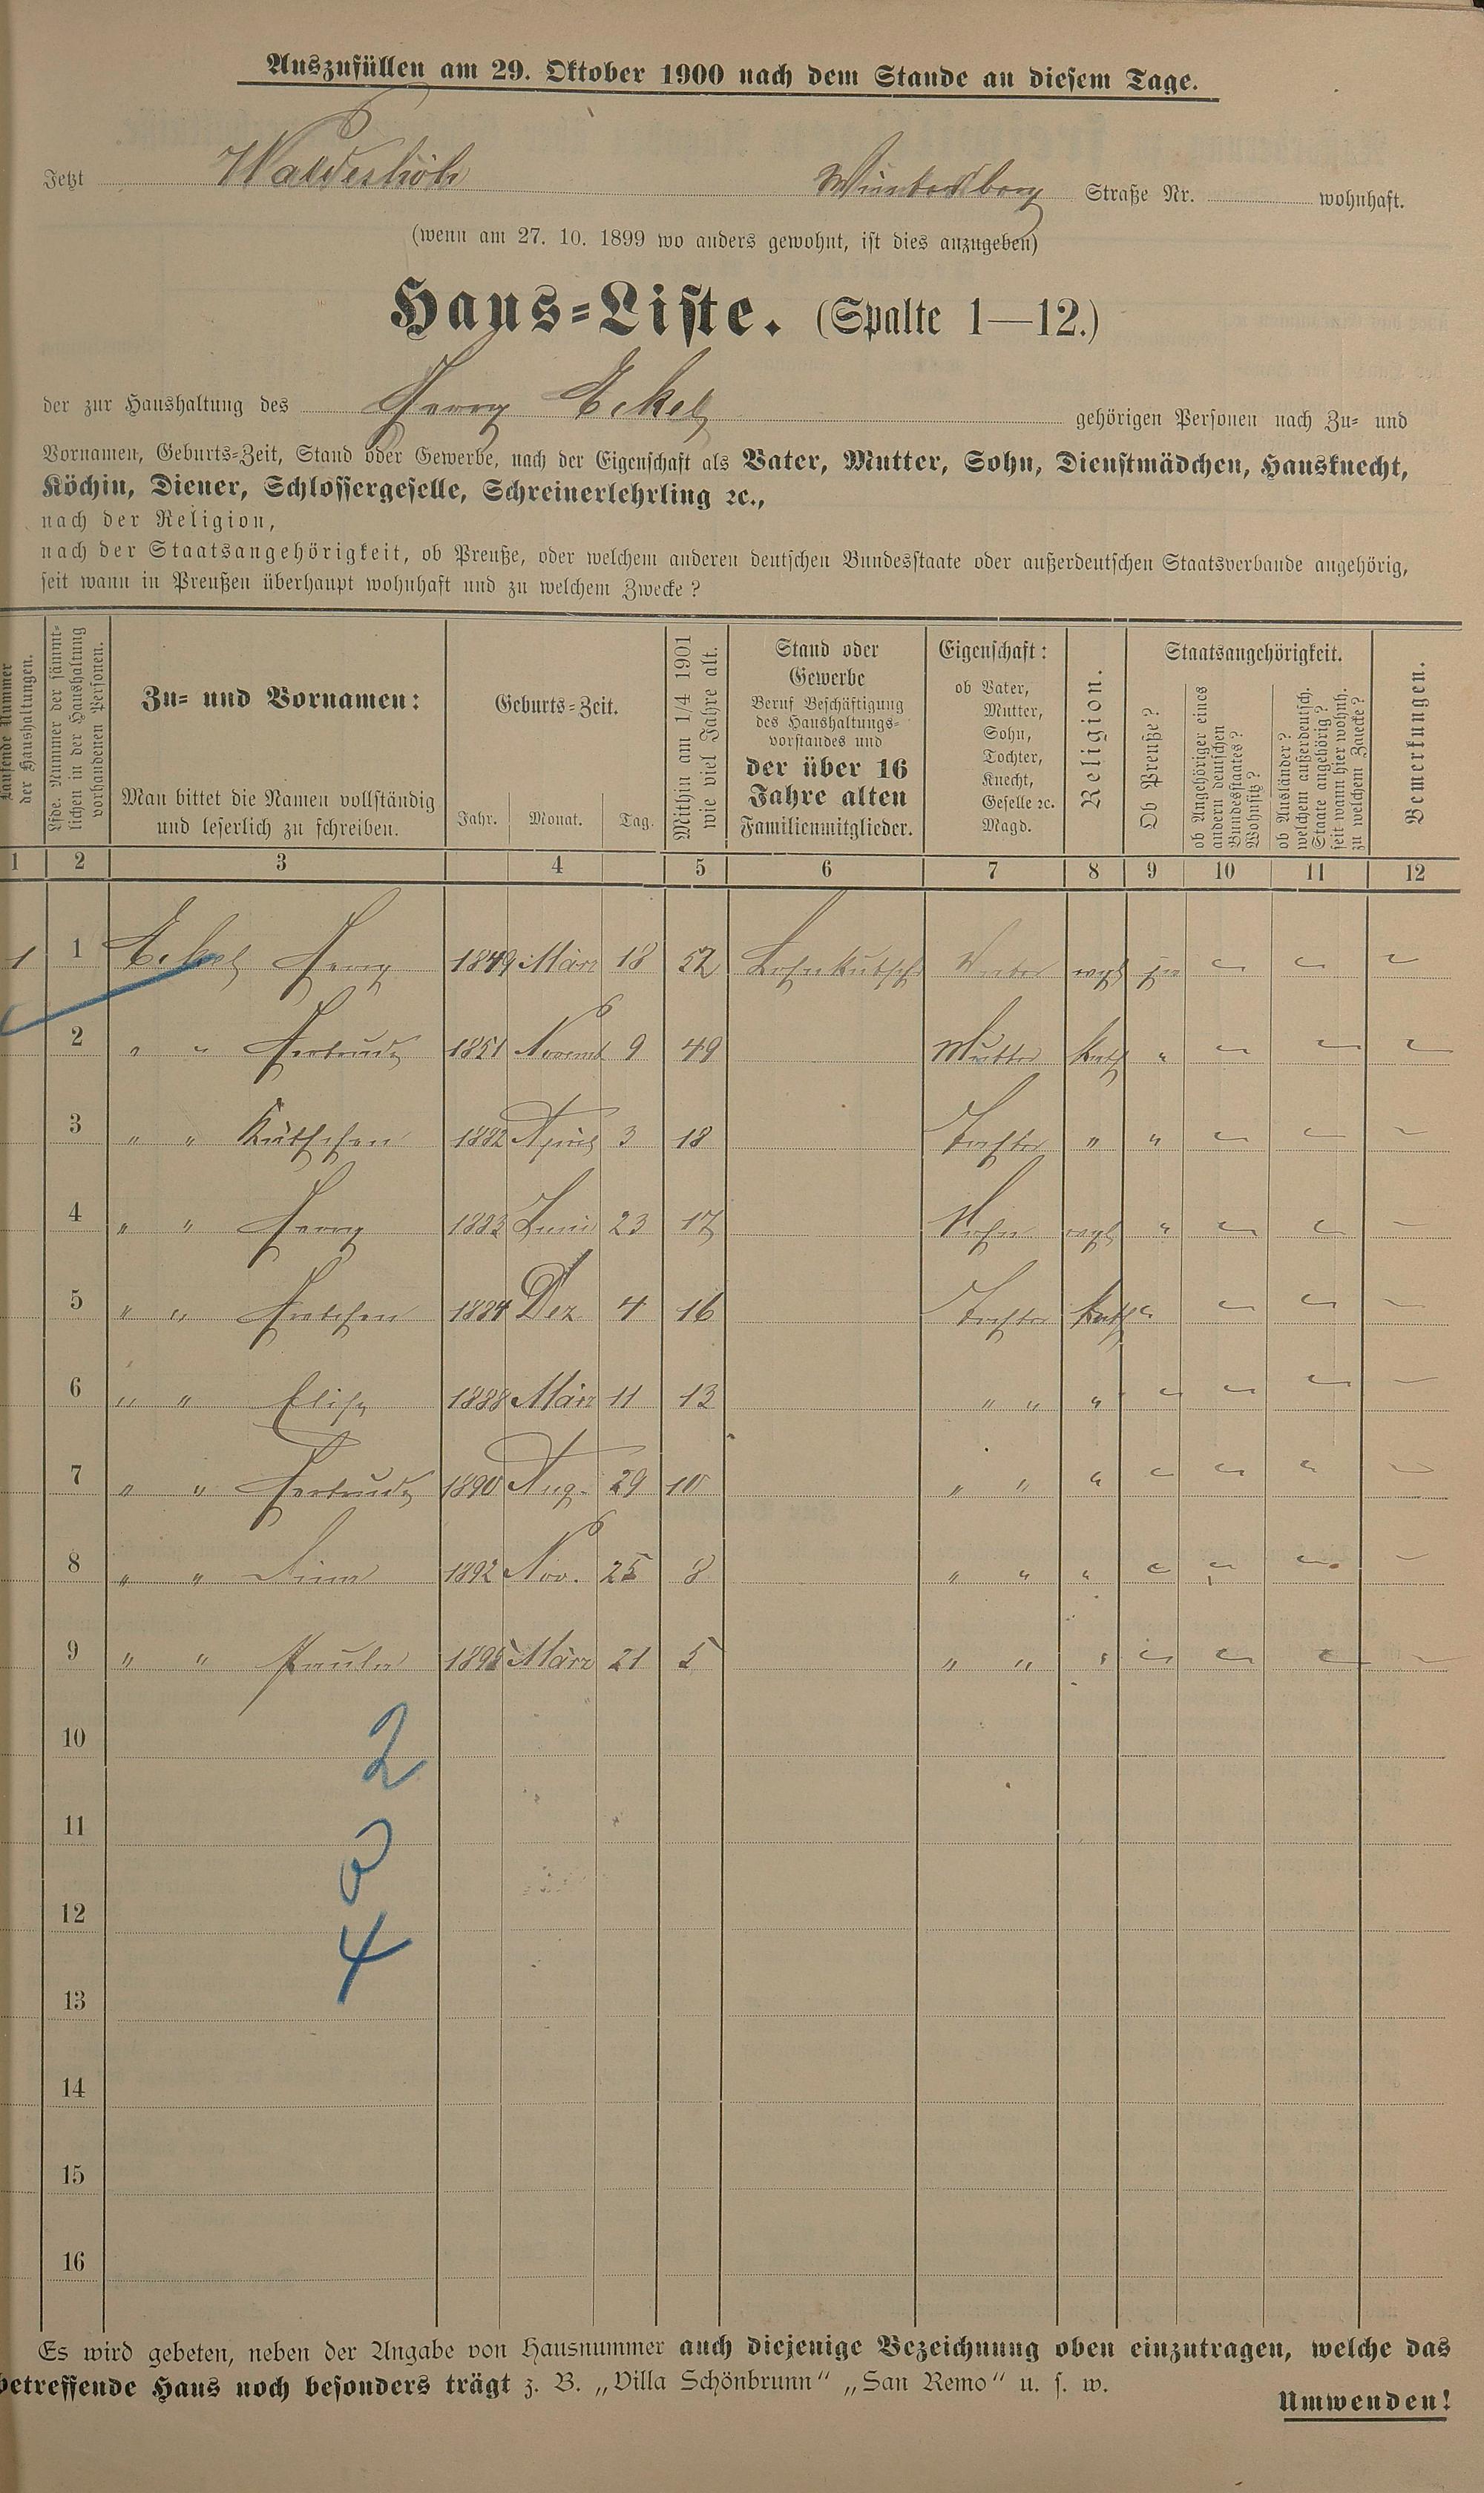 Auszufüllen am 29. Oktober 1900 nach dem Stande an diesem Tage.
Jetzt Walderhöh Winterberg Straße Nr. wohnhaft.
(wenn am 27. 10. 1899 wo anders gewohnt, ist dies anzugeben)
Haus-Liste. (Spalte 1—12.)
der zur Haushaltung des Georg Eckel gehörigen Personen nach Zu- und
Vornamen, Geburts-Zeit, Stand oder Gewerbe, nach der Eigenschaft als Vater, Mutter, Sohn, Dienstmädchen, Hausknecht,
Köchin, Diener, Schlossergeselle, Schreinerlehrling ꝛc.,
nach der Religion,
nach der Staatsangehörigkeit, ob Preuße, oder welchem anderen deutschen Bundesstaate oder außerdeutschen Staatsverbande angehörig,
seit wann in Preußen überhaupt wohnhaft und zu welchem Zwecke?
Laufende Nummer
der Haushaltungen.
Lfde. Nummer der sämmt-
lichen in der Haushaltung
vorhandenen Personen.
Zu- und Vornamen:
Man bittet die Namen vollständig
und leserlich zu schreiben.
Geburts-Zeit.
Jahr. Monat. Tag.
Mithin am 1/4 1901
wie viel Jahre alt.
Stand oder
Gewerbe
Beruf Beschäftigung
des Haushaltungs-
vorstandes und
der über 16
Jahre alten
Familienmitglieder.
Eigenschaft:
ob Vater,
Mutter,
Sohn,
Tochter,
Knecht,
Geselle ꝛc.
Magd.
Religion.
Staatsangehörigkeit.
Ob Preuße?
ob Angehöriger eines
andern deutschen
Bundesstaates?
Wohnsitz?
ob Ausländer?
welchem außerdeutsch.
Staate angehörig?
seit wann hier wohnh.
zu welchem Zwecke?
Bemerkungen.
1 2 3 4 5 6 7 8 9 10 11 12
1 1 Eckel Georg 1849 März 18 52 Lohnkutsch Vater evgl ja
2 " " Gertrude 1851 Novemb 9 49 Mutter Kath "
3 " " Käthchen 1882 April 3 18 Tochter " "
4 " " Georg 1883 Juni 23 17 Sohn evgl "
5 " " Gretchen 1884 Dez 4 16 Tochter Kath "
6 " " Elise 1888 März 11 13 " " "
7 " " Gertrude 1890 Aug. 29 10 " " "
8 " " Lina 1892 Nov. 25 8 " " "
9 " " Paula 1895 März 21 5 " " "
10
2
11
0
12
4
13
14
15
16
Es wird gebeten, neben der Angabe von Hausnummer auch diejenige Bezeichnung oben einzutragen, welche das
betreffende Haus noch besonders trägt z. B. „Villa Schönbrunn" „San Remo" u. s. w.
Umwenden!